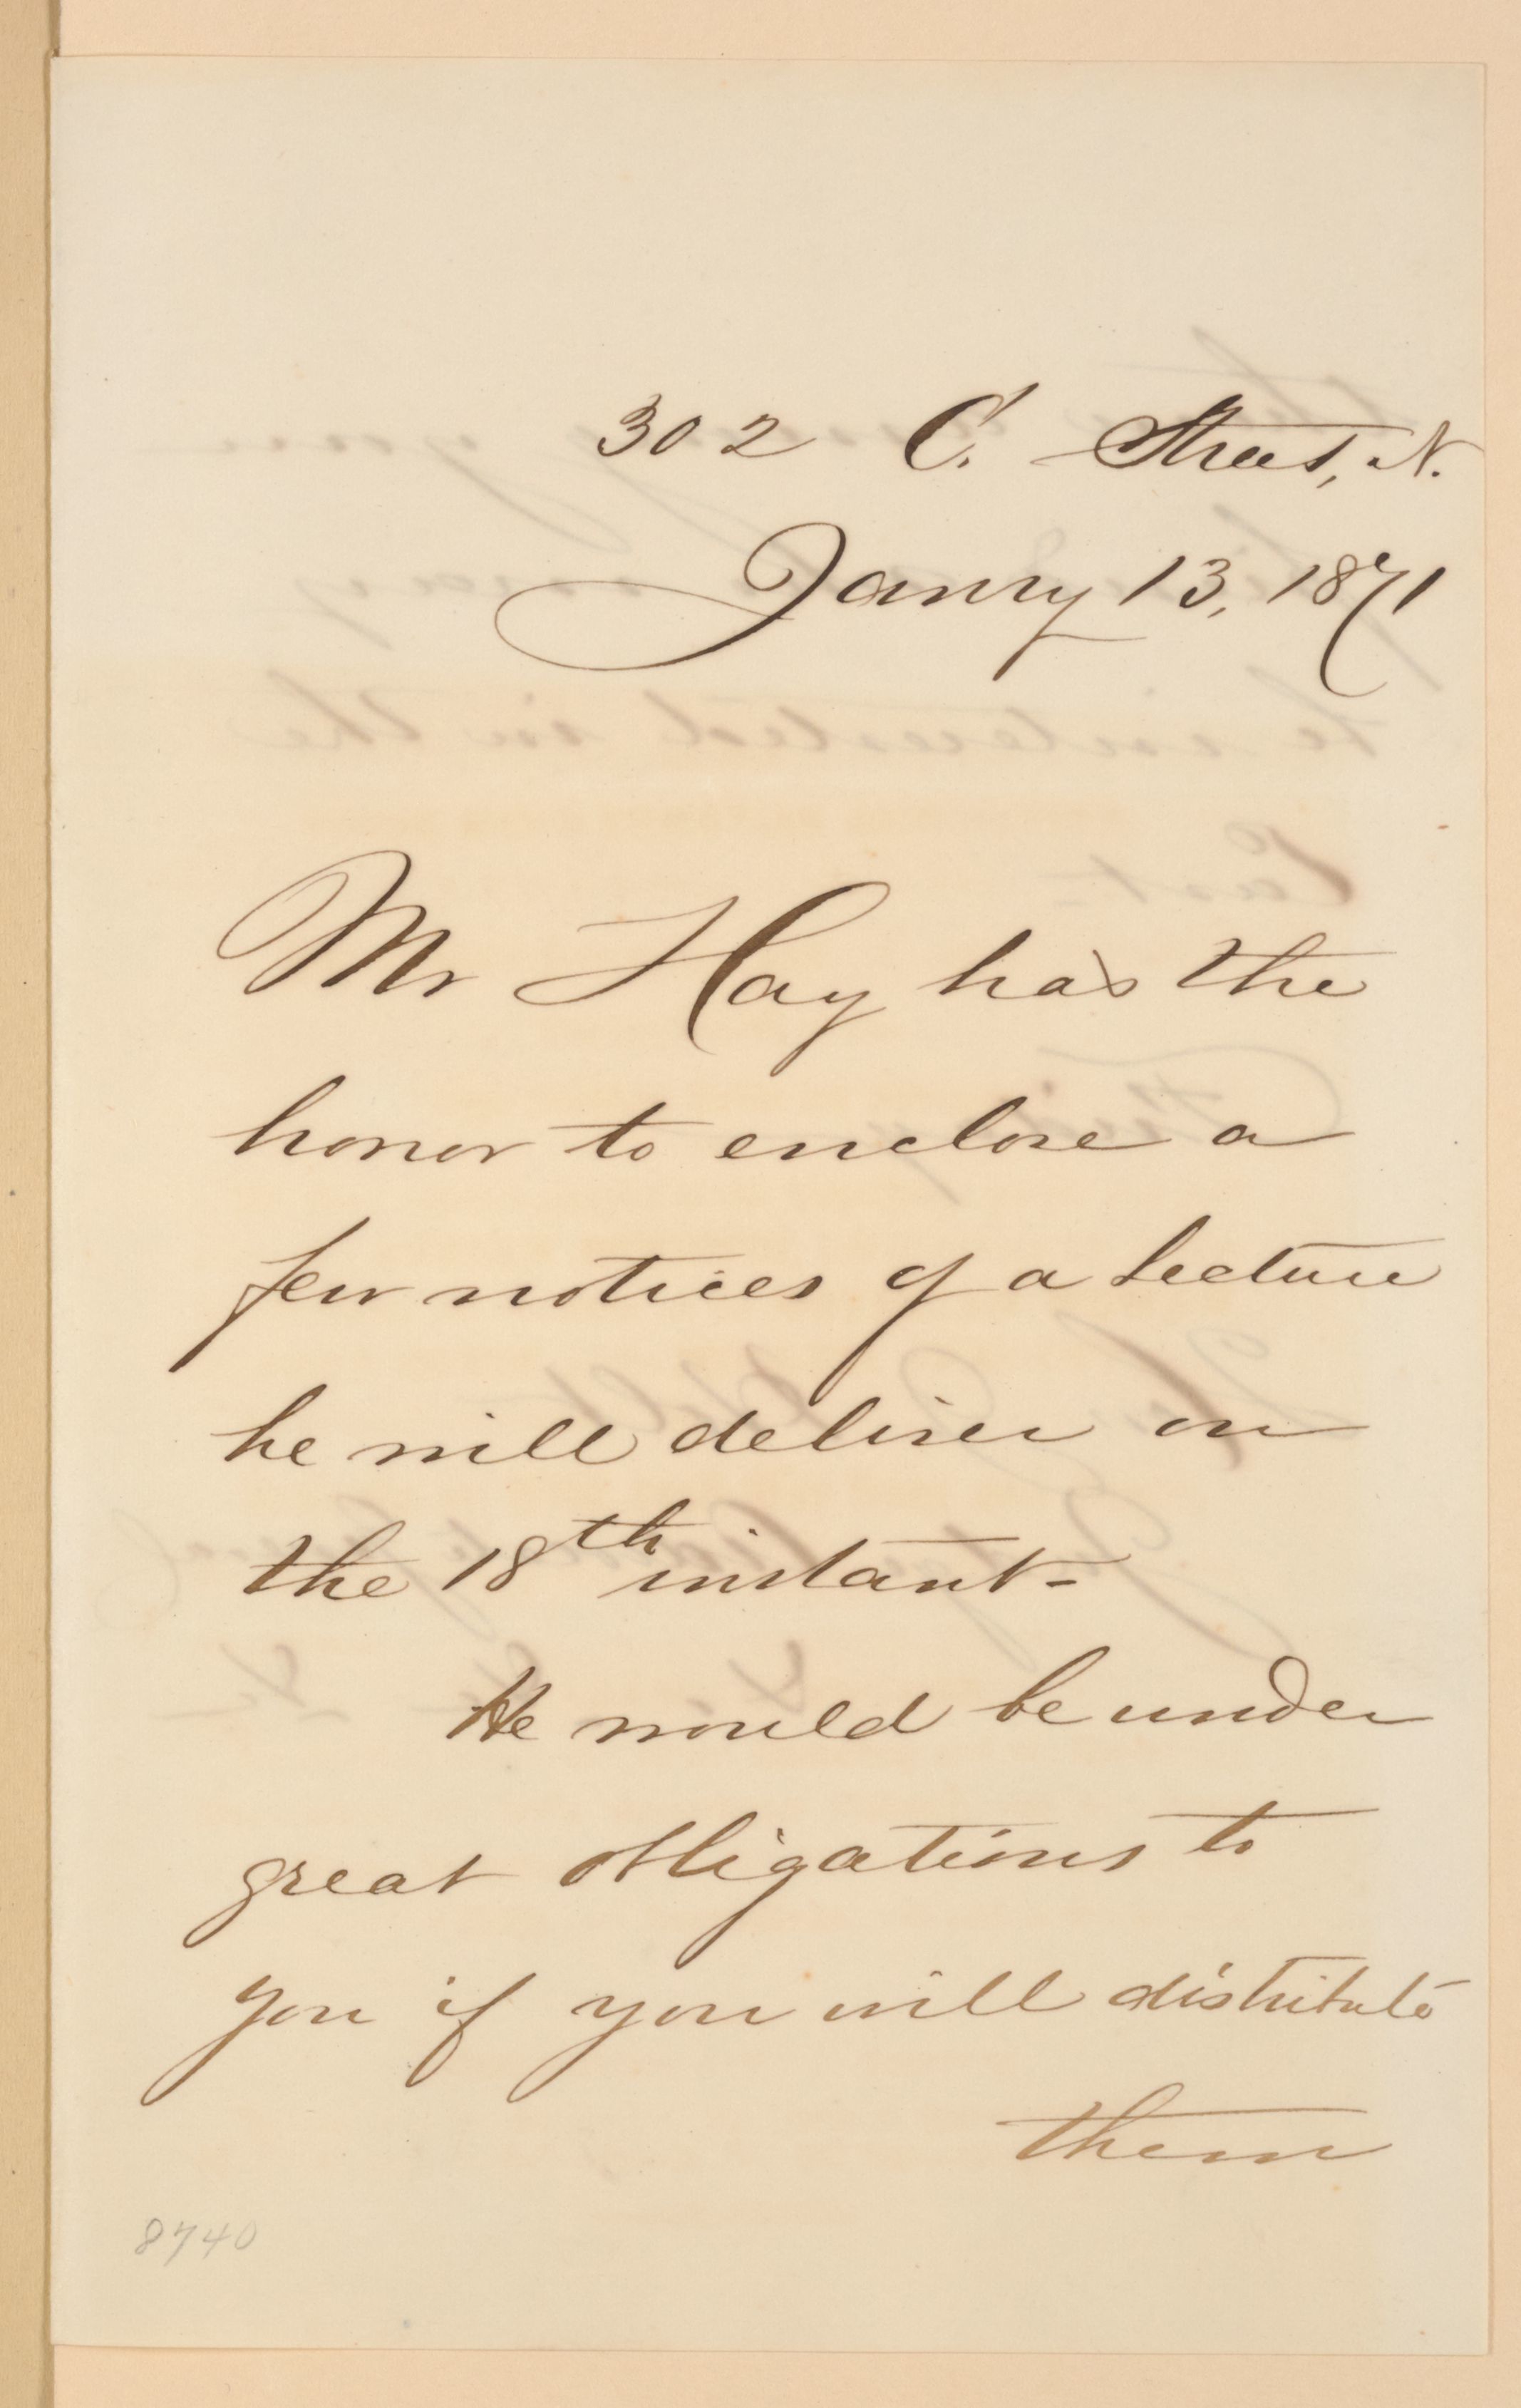 302 C. Street, N.
Janry 13, 1871
Mr Hay has the
honor to enclose a
few notices of a lecture
he will deliver on
the 18th instant-
He would be under
great obligations to
you if you will distribute
them
8740